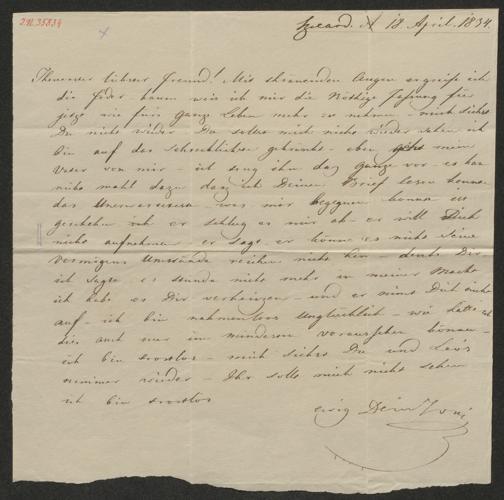 J.N. 35834
18. April. 1834.
Theuerster liebster Freund! Mit thränenden Augen ergreife ich
die Feder kaum weis ich mir die Nöthige Fassung für
jetzt wie fürs ganze Leben mehr zu nehmen – mich siehst
Du nicht wieder Du sollst mich nicht wieder sehen ich
bin auf das Schrecklichste gekränkt – eben geht mein
Vater von mir – ich trug ihm das Ganze vor – es kam
nicht mahl dazu daß ich Deinen Brief lesen konnte
das Unerwarteste – was mir begegnen konnte ist
geschehen – er schlug es mir ab – er will Dich
nicht aufnehmen er sagt er könne es nicht Seine
Vermögens Umstände reichen nicht hin – denke Dir
ich sagte es stünde nicht mehr in meiner Macht
ich habe es Dir verheissen – und er nimt Dich nicht
auf – ich bin nahmenlos Unglücklich – wie hätte ich
dies auch nur im mindesten voraussehen können –
ich bin trostlos – mich siehst Du und
nimmer wieder – Ihr sollt mich nicht sehen
ich bin trostlos
ewig Dein